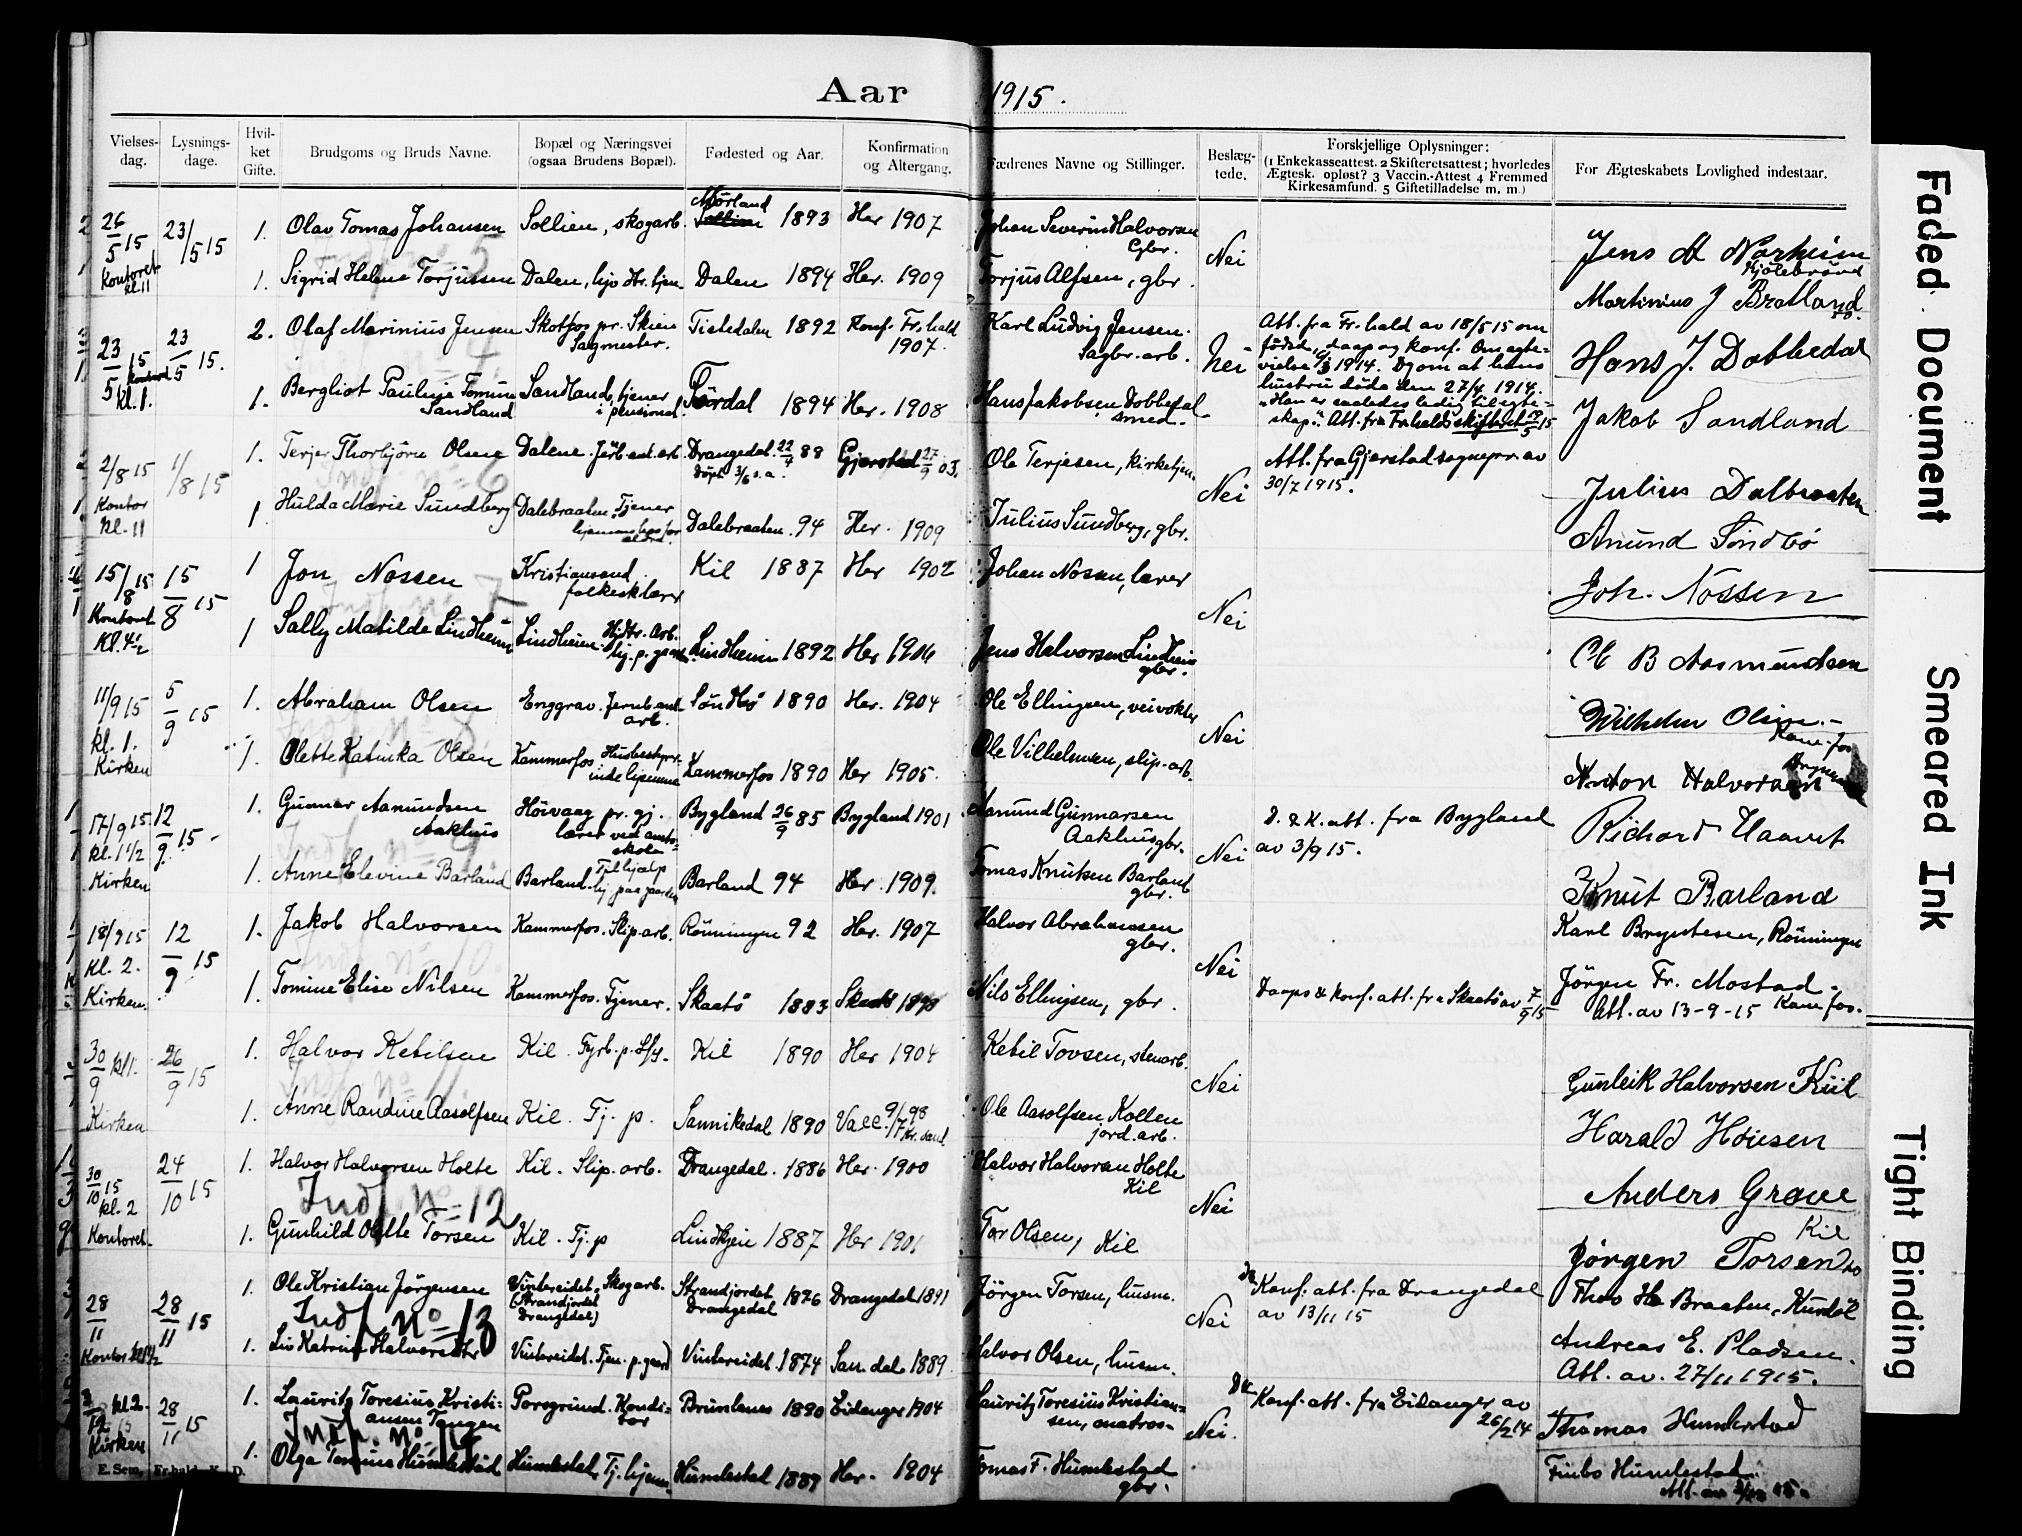 Aar 1915.
Vielses-dag.
Lysnings-dage.
Hvil-ket Gifte.
Brudgoms og Bruds Navne.
Bopæl og Næringsvei (ogsaa Brudens Bopæl).
Fødested og Aar.
Konfirmation og Altergang.
Fædrenes Navne og Stillinger.
Beslæg-tede.
Forskjellige Oplysninger:
(1 Enkekasseattest. 2 Skifteretsattest; hvorledes
Ægtesk. opløst? 3 Vaccin.-Attest 4 Fremmed
Kirkesamfund. 5 Giftetilladelse m. m.)
For Ægteskabets Lovlighed indestaar.
26/5 15 Kontoret kl 11 23/5 15 1. Olav Tomas Johansen Sollien, skogarb. Mörland 1893 Her 1907 Johan Severin Halvorsen Gbr. Nei Jens M Norheim
1. Sigrid Helene Torjussen Dalen Dalen 1894 Her. 1909 Torjus Alfsen, gbr. Martinius J Bratland
23/5 15 kl. 1. 23/5 15. 2. Olaf Marinius Jensen Skotfos pr. Skien Sagmester. Tistedalen 1892 Konf. Fr.hald 1907. Karl Ludvig Jensen. Sagbr. arb. Nei Att. fra Fr.hald av 18/5 15 om
födsel, daap og konf. Om egte-
vielse 1914. Og om at hans
hustru döde den 27/4 1914.
"Han er saaledes ledig til egte-
skap." Att. fra Fr.halds skifteret 19/5 15
Hans J. Dobbedal
1. Bergliot Pauline Tomine Sandland Sandland, tjener i pensionat Tördal 1894 Her. 1908 Hans Jakobsen Dobbedal smed. Jakob Sandland
2/8 15 Kontor kl. 11 1/8 15 1. Terjer Thorbjörn Olsen Dalene Drangedal 22/4 88 Döpt 3/6 s.a. Gjerstad 27/9 03. Ole Terjesen, kirketjen. Nei Att. fra Gjerstad sognepr. av
30/7 1915. Julius Dalbraaten
1 Hulda Marie Sundberg Dalebraaten. Tjener Dalebraaten. 94 Her. 1909 Julius Sundberg, gbr. Anund Söndbö
15/8 15 Kontoret kl. 4½ 15/8 15 1 Jon Nossen Kristiansand folkesk.lærer Kil 1887 Her 1902 Johan Nossen, lærer Nei Joh. Nossen
1 Sally Matilde Lindheim Lindheim. Lindheim 1892 Her 1906 Jens Halvorsen Lindheim gbr. Ol B Aasmundsen
11/9 15 kl. 1. Kirken 5/9 15 1. Abraham Olsen Enggrav. Jernb.anl. arb. Söndbö 1890 Her. 1904 Ole Ellingsen, veivokter Nei Wilhelm Olsen. Kam.fos
1. Olette Katinka Olsen Kammerfos Husbestyrer-inde hjemme Kammerfos 1890 Her 1905. Ole Vilhelmsen, slip. arb. Anton Halvorsen
17/9 15 kl. 1½ Kirken 12/9 15 1. Gunnar Aamundsen Aakhus Höivaag pr. gj. lærer ved amts-skolen Bygland 26/9 85 Bygland 1901 Aamund Gunnarsen Aakhus, gbr. Nei D. & K. att. fra Bygland
av 3/9 15. Richard Haavet
1. Anne Elevine Barland Barland Tjl hjælp hj. paa gaarden Barland 94 Her. 1909. Tomas Knutsen Barland gbr. Knut Barland
18/9 15 kl. 2. Kirken 12/9 15 1. Jakob Halvorsen Kammerfos. Slip. arb. Rönningen 92 Her. 1907 Halvor Abrahamsen gbr. Nei Karl Bryntesen, Rönningen
1. Tomine Elise Nilsen Kammerfos. Tjener. Skaatö 1883 Skaatö Nils Ellingsen, gbr. Daaps & konf. att. fra Skaatö av 7/9 15 Jörgen Fr. Mostad. Kam fos.
Att. av 13-9-15
30/9 kl 1. Kirken 26/9 15 1. Halvor Ketilsen Kil. Fyrb. p. Kil 1890 Her 1904 Ketil Tovsen, stenarb. Nei Gunleik Halvorsen Kiil
1. Anne Randine Aasolfsen Kil. Tj. p. Sannikedal 1890 Ole Aasolfsen Kollen jord. arb. Harald Höiesen
30/10 15 kl. 2 Kontoret. 24/10 15 1. Halvor Halvorsen Holte Kil. Slip. arb. Drangedal. 1886 Her. 1900 Halvor Halvorsen Holte Kil Nei Anders Grave Kil
Indf. No 12
1. Gunhild Olette Torsen Kil. Tj. p Lindheim 1887 Her 1901 Tor Olsen, Kil Jörgen Torsen
28/11 Kontor 28/11 15 1. Ole Kristian Jörgensen Vintereidet. Skogarb. (Strandjordet Drangedal) Strandjordet Drangedal 1876 Drangedal 1891 Jörgen Torsen, husm. Nei Konf. att. fra Drangedal
av 13/11 15 Thov H. Braaten, Kurdöl
Indf No 13
1. Liv Katrine Halvorsen Vintereidet. Tjen. p. gaard Vintereidet. 1874 San.dal 1889. Halvor Olsen, husm. Andreas E. Pladsen.
Att. av. 27/11 1915.
3/12 kl 2. Kirken 28/11 15 1. Lauritz Toresius Kristiansen Tangen Porsgrund. Kondi-tor Brunlanes 1890 Eidanger 1904 Lauritz Toresius Kristian-sen, matros Nei. Konf. att. fra Eidanger av
26/2 14 Thomas Humlestad
Indf. No 14
1. Olga Tomine Humlestad Humlestad, Tj. hjem. Humlestad 1889 Her. 1904 Tomas F. Humlestad gbr. Finbo Humlestad
E. Sem, Fr.hald.
Faded Document
Smeared Ink
Tight Binding